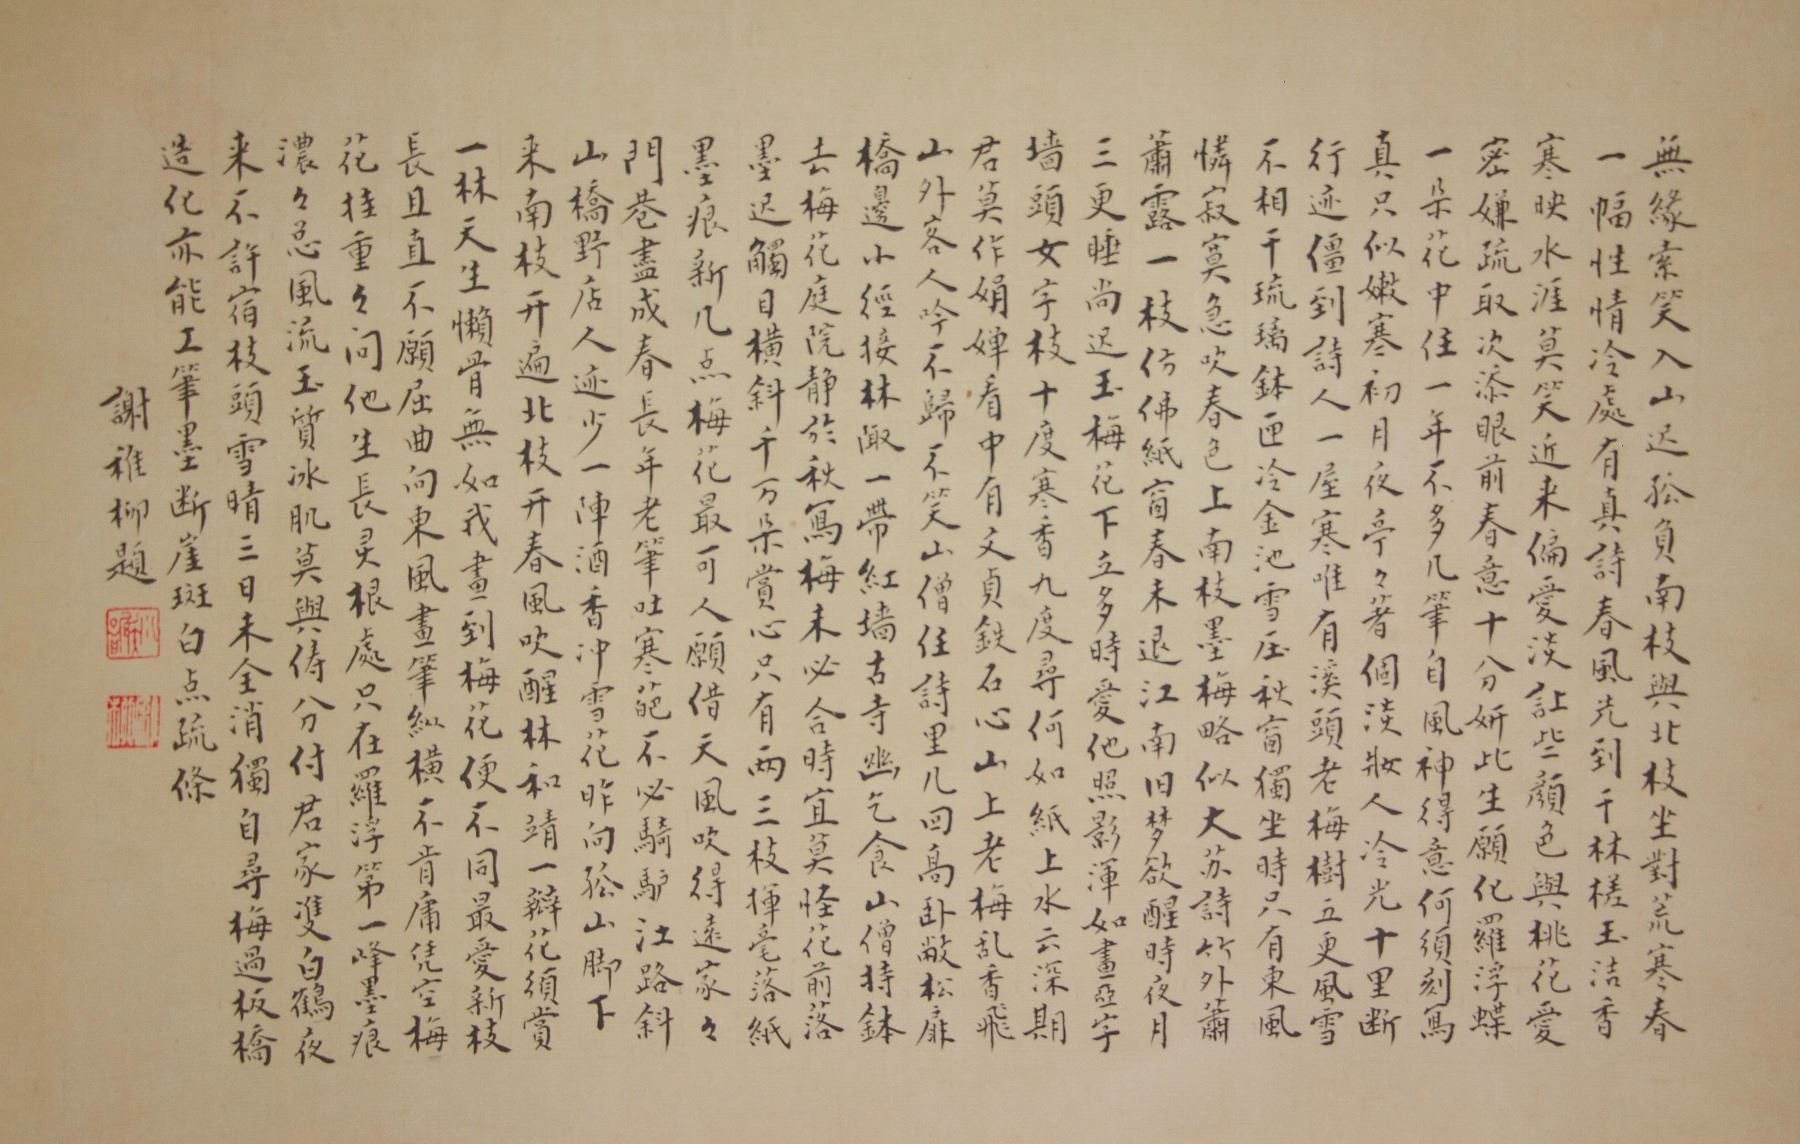 無緣索笑入山遲孤負南枝與北枝坐對荒寒春
一幅性情冷處有真詩春風先到千林槎玉洁香
寒映水涯莫笑近来偏愛淡訌些顏色與桃花愛
密嫌疏取次添眼前春意十分妍此生願化羅浮蝶
一朵花中住一年不多几筆自風神得意何須刻寫
真只似嫩寒初月夜亭々著個淡妝人冷光十里断
行迹僵到詩人一屋寒唯有溪頭老梅樹五更風雪
不相干琉璃鉢匝冷金池雪压秋窗獨坐時只有東風
憐寂寞急吹春色上南枝墨梅略似大苏詩竹外蕭
蕭露一枝仿佛紙窗春未退江南旧梦欲醒時夜月
三更睡尚迟玉梅花下立多時愛他照影渾如畫亞字
墙頭女字枝十度寒香九度尋何如紙上水云深期
君莫作娟婵看中有文貞鉄石心山上老梅乱香飛
山外客人吟不歸不笑山僧住詩里几回高卧敞松扉
橋邊小徑接林陬一帶紅墙古寺幽乞食山僧持鉢
去梅花庭院静於秋寫梅未必合時宜莫怪花前落
墨迟觸目橫斜千万朵賞心只有兩三枝揮毫落紙
墨痕新几点梅花最可人願借天風吹得遠家々
門巷盡成春長年老筆吐寒葩不必騎馿江路斜
山橋野店人迹少一陣酒香冲雪花昨向孤山脚下
来南枝开遍北枝开春風吹醒林和靖一瓣花須賞
一林天生懶骨無如我畫到梅花便不同最愛新枝
長且直不願屈曲向東風畫筆縱橫不肯庸凭空梅
花挂重々问他生長灵根處只在羅浮第一峰墨痕
濃々忘風流玉質冰肌莫與儔分付君家隻白鶴夜
来不許宿枝頭雪晴三日未全消獨自尋梅過板橋
造化亦能工筆墨断崖斑白点疏條
謝稚柳題